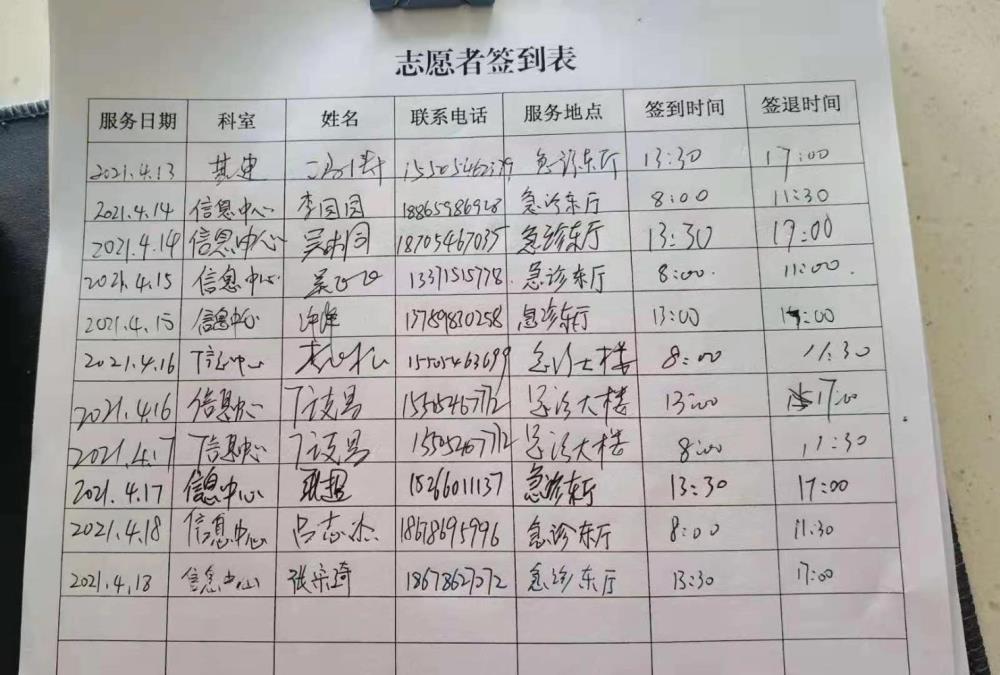 志愿者签到表
服务日期 科室 姓名 联系电话 服务地点 签到时间 签退时间
2021.4.13 急诊东厅 13:30 17:00
2021.4.14 信息中心 李园园 18865986928 急诊东厅 8:00 11:30
2021.4.14 信息中心 18705467035 急诊东厅 13:30 17:00
2021.4.15 信息中心 13371515778 急诊东厅 8:00 11:00
2021.4.15 信息中心 13789830258 急诊东厅 13:00
2021.4.16 信息中心 15505463699 急诊大楼 8:00 11:30
2021.4.16 信息中心 急诊大楼 13:00 17:00
2021.4.17 信息中心 急诊大楼 8:00 11:30
2021.4.17 信息中心 18266011137 急诊东厅 13:30 17:00
2021.4.18 信息中心 吕志杰 18678695996 急诊东厅 8:00 11:30
2021.4.18 信息中心 18678627272 急诊东厅 13:30 17:00